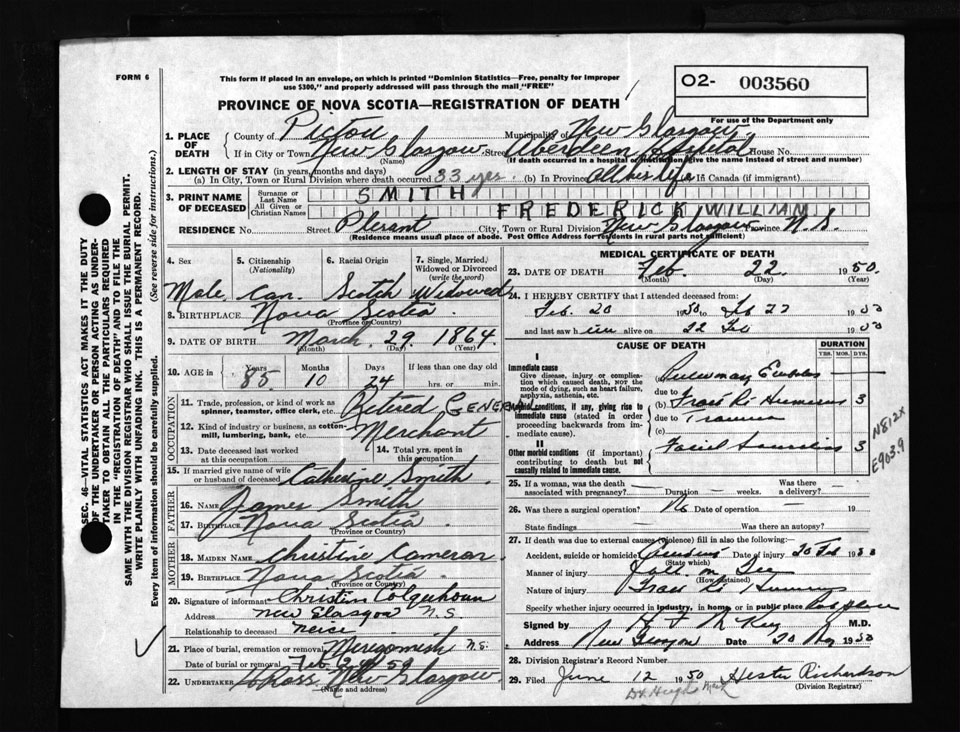 FORM 6
This form if placed in an envelope, on which is printed "Dominion Statistics—Free, penalty for improper
use $300," and properly addressed will pass through the mail "FREE"
O2- 003560
For use of the Department only
PROVINCE OF NOVA SCOTIA—REGISTRATION OF DEATH
1. PLACE OF DEATH
County of Pictou Municipality of New Glasgow
If in City or Town New Glasgow Street Aberdeen Hospital House No.
(Name) (If death occurred in a hospital or institution give the name instead of street and number)
2. LENGTH OF STAY (in years, months and days)
(a) In City, Town or Rural Division where death occurred 33 yrs. (b) In Province All his life In Canada (if immigrant)
3. PRINT NAME OF DECEASED
Surname or Last Name SMITH
All Given or Christian Names FREDERICK WILLIAM
RESIDENCE No. Street City, Town or Rural Division New Glasgow Province N.S.
(Residence means usual place of abode. Post Office Address for residents in rural parts not sufficient)
4. Sex 5. Citizenship (Nationality) 6. Racial Origin 7. Single, Married, Widowed or Divorced (write the word)
Male Can. Scotch Widowed
8. BIRTHPLACE Nova Scotia
(Province or Country)
9. DATE OF BIRTH March 29 1864
(Month) (Day) (Year)
10. AGE in Years Months Days If less than one day old
85 10 24 hrs. or min.
OCCUPATION
11. Trade, profession or kind of work as spinner, teamster, office clerk, etc. Retired GENERAL
12. Kind of industry or business, as cotton-mill, lumbering, bank, etc. Merchant
13. Date deceased last worked at this occupation 14. Total yrs. spent in this occupation
15. If married give name of wife or husband of deceased Catherine Smith
FATHER
16. NAME James Smith
17. BIRTHPLACE Nova Scotia
(Province or Country)
MOTHER
18. MAIDEN NAME Christine Cameron
19. BIRTHPLACE Nova Scotia
(Province or Country)
20. Signature of informant Christine Colquhoun
Address New Glasgow N.S.
Relationship to deceased Neice
21. Place of burial, cremation or removal Merigomish N.S.
Date of burial or removal Feb 24
22. UNDERTAKER Ross New Glasgow
(Name and address)
MEDICAL CERTIFICATE OF DEATH
23. DATE OF DEATH Feb. 22 1950
(Month) (Day) (Year)
24. I HEREBY CERTIFY that I attended deceased from:
Feb. 20 1950 to Feb 22 19
and last saw him alive on 22 Feb 19
CAUSE OF DEATH DURATION
YRS. MOS. DYS.
I
Immediate cause
Give disease, injury or complication which caused death, NOT the mode of dying, such as heart failure, asphyxia, asthenia, etc.
(a) Pulmonary Embolus
due to
Morbid conditions, if any, giving rise to immediate cause (stated in order proceeding backwards from immediate cause)
(b) Fract Rt Humerus 3
due to Trauma
(c)
II
Other morbid conditions (if important) contributing to death but not causally related to immediate cause.
3
N812X
E903.9
25. If a woman, was the death associated with pregnancy? Duration weeks. Was there a delivery?
26. Was there a surgical operation? No Date of operation 19
State findings Was there an autopsy?
27. If death was due to external causes (violence) fill in also the following:
Accident, suicide or homicide Accident Date of injury 20 Feb 1950
(State which)
Manner of injury Fall on Ice
(How sustained)
Nature of injury Fract Rt Humerus
Specify whether injury occurred in industry, in home or in public place
Signed by M.D.
Address New Glasgow Date 20 19
28. Division Registrar's Record Number
29. Filed June 12 1950 Hester Richardson
(Division Registrar)
SEC. 46—VITAL STATISTICS ACT MAKES IT THE DUTY
OF THE UNDERTAKER OR PERSON ACTING AS UNDER-
TAKER TO OBTAIN ALL THE PARTICULARS REQUIRED
IN THE "REGISTRATION OF DEATH" AND TO FILE THE
SAME WITH THE DIVISION REGISTRAR WHO SHALL ISSUE THE BURIAL PERMIT.
WRITE PLAINLY WITH UNFADING INK. THIS IS A PERMANENT RECORD.
Every item of information should be carefully supplied. (See reverse side for instructions.)